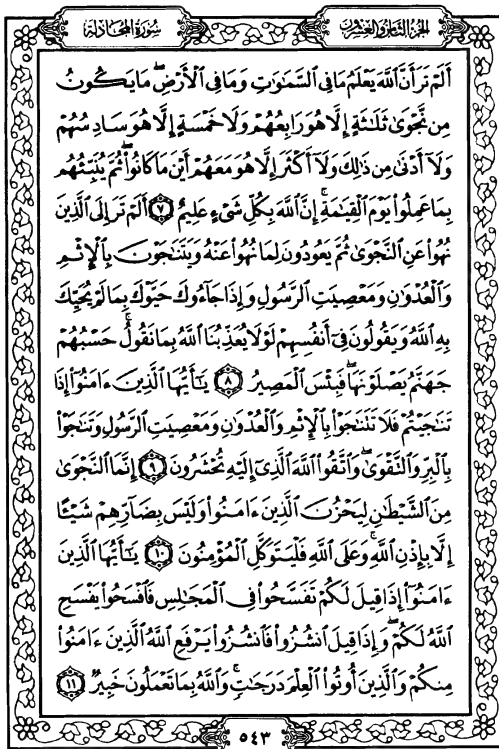 سُورَةُ المُجَادلة
الجزء الثامن والعشرون
أَلَمْ تَرَ أَنَّ ٱللَّهَ يَعْلَمُ مَا فِي ٱلسَّمَٰوَٰتِ وَمَا فِي ٱلْأَرْضِۖ مَا يَكُونُ
مِن نَّجْوَىٰ ثَلَٰثَةٍ إِلَّا هُوَ رَابِعُهُمْ وَلَا خَمْسَةٍ إِلَّا هُوَ سَادِسُهُمْ
وَلَآ أَدْنَىٰ مِن ذَٰلِكَ وَلَآ أَكْثَرَ إِلَّا هُوَ مَعَهُمْ أَيْنَ مَا كَانُوا۟ۖ ثُمَّ يُنَبِّئُهُم
بِمَا عَمِلُوا۟ يَوْمَ ٱلْقِيَٰمَةِۚ إِنَّ ٱللَّهَ بِكُلِّ شَىْءٍ عَلِيمٌ ٧ أَلَمْ تَرَ إِلَى ٱلَّذِينَ
نُهُوا۟ عَنِ ٱلنَّجْوَىٰ ثُمَّ يَعُودُونَ لِمَا نُهُوا۟ عَنْهُ وَيَتَنَٰجَوْنَ بِٱلْإِثْمِ
وَٱلْعُدْوَٰنِ وَمَعْصِيَتِ ٱلرَّسُولِ وَإِذَا جَآءُوكَ حَيَّوْكَ بِمَا لَمْ يُحَيِّكَ
بِهِ ٱللَّهُ وَيَقُولُونَ فِىٓ أَنفُسِهِمْ لَوْلَا يُعَذِّبُنَا ٱللَّهُ بِمَا نَقُولُۚ حَسْبُهُمْ
جَهَنَّمُ يَصْلَوْنَهَاۖ فَبِئْسَ ٱلْمَصِيرُ ٨ يَٰٓأَيُّهَا ٱلَّذِينَ ءَامَنُوٓا۟ إِذَا
تَنَٰجَيْتُمْ فَلَا تَتَنَٰجَوْا۟ بِٱلْإِثْمِ وَٱلْعُدْوَٰنِ وَمَعْصِيَتِ ٱلرَّسُولِ وَتَنَٰجَوْا۟
بِٱلْبِرِّ وَٱلتَّقْوَىٰۖ وَٱتَّقُوا۟ ٱللَّهَ ٱلَّذِىٓ إِلَيْهِ تُحْشَرُونَ ٩ إِنَّمَا ٱلنَّجْوَىٰ
مِنَ ٱلشَّيْطَٰنِ لِيَحْزُنَ ٱلَّذِينَ ءَامَنُوا۟ وَلَيْسَ بِضَآرِّهِمْ شَيْـًٔا
إِلَّا بِإِذْنِ ٱللَّهِۚ وَعَلَى ٱللَّهِ فَلْيَتَوَكَّلِ ٱلْمُؤْمِنُونَ ١٠ يَٰٓأَيُّهَا ٱلَّذِينَ
ءَامَنُوٓا۟ إِذَا قِيلَ لَكُمْ تَفَسَّحُوا۟ فِى ٱلْمَجَٰلِسِ فَٱفْسَحُوا۟ يَفْسَحِ
ٱللَّهُ لَكُمْۖ وَإِذَا قِيلَ ٱنشُزُوا۟ فَٱنشُزُوا۟ يَرْفَعِ ٱللَّهُ ٱلَّذِينَ ءَامَنُوا۟
مِنكُمْ وَٱلَّذِينَ أُوتُوا۟ ٱلْعِلْمَ دَرَجَٰتٍۚ وَٱللَّهُ بِمَا تَعْمَلُونَ خَبِيرٌ ١١
٥٤٣